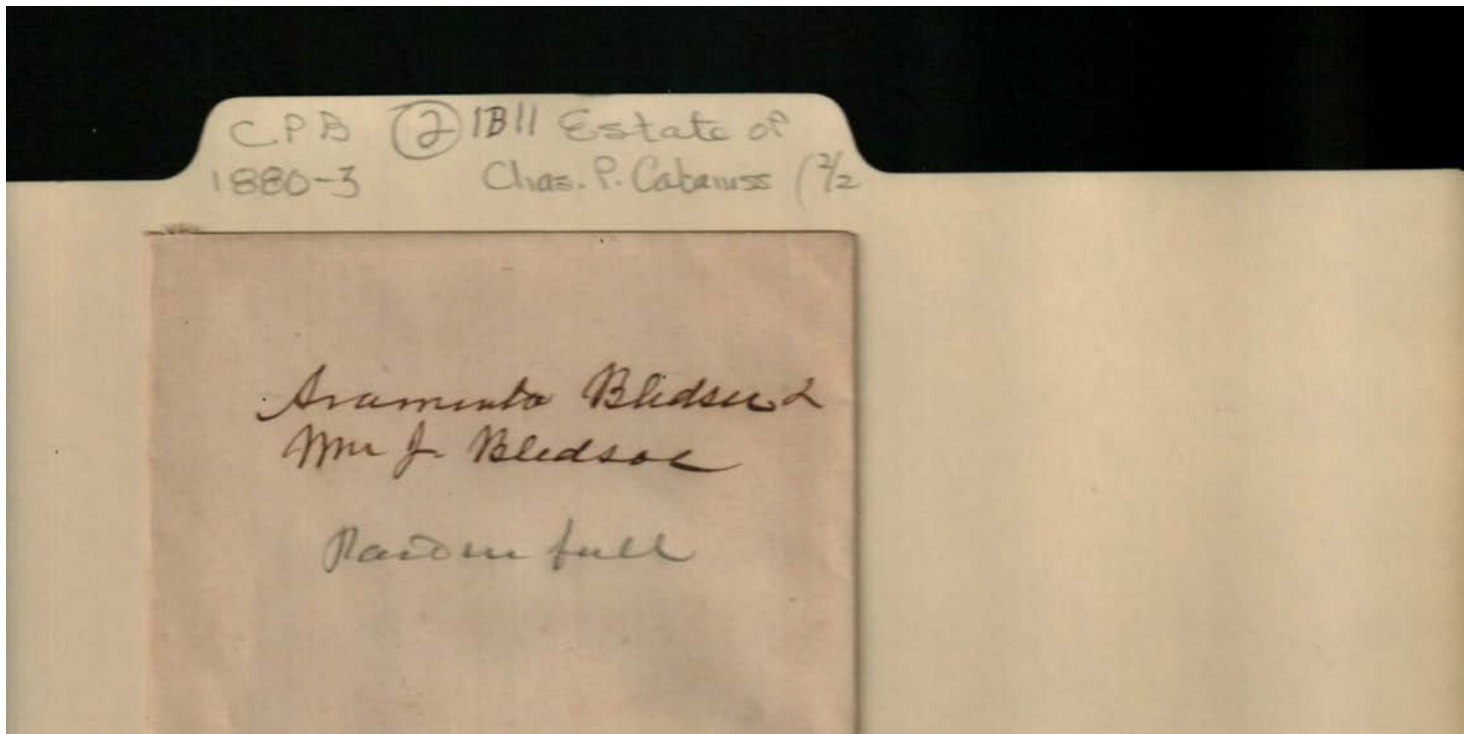 C.P.B ② 1B11 Estate of
1880-3 Chas. P. Cabaniss (2/2
Araminta Bledsoe &
Wm J. Bledsoe
Paid in full